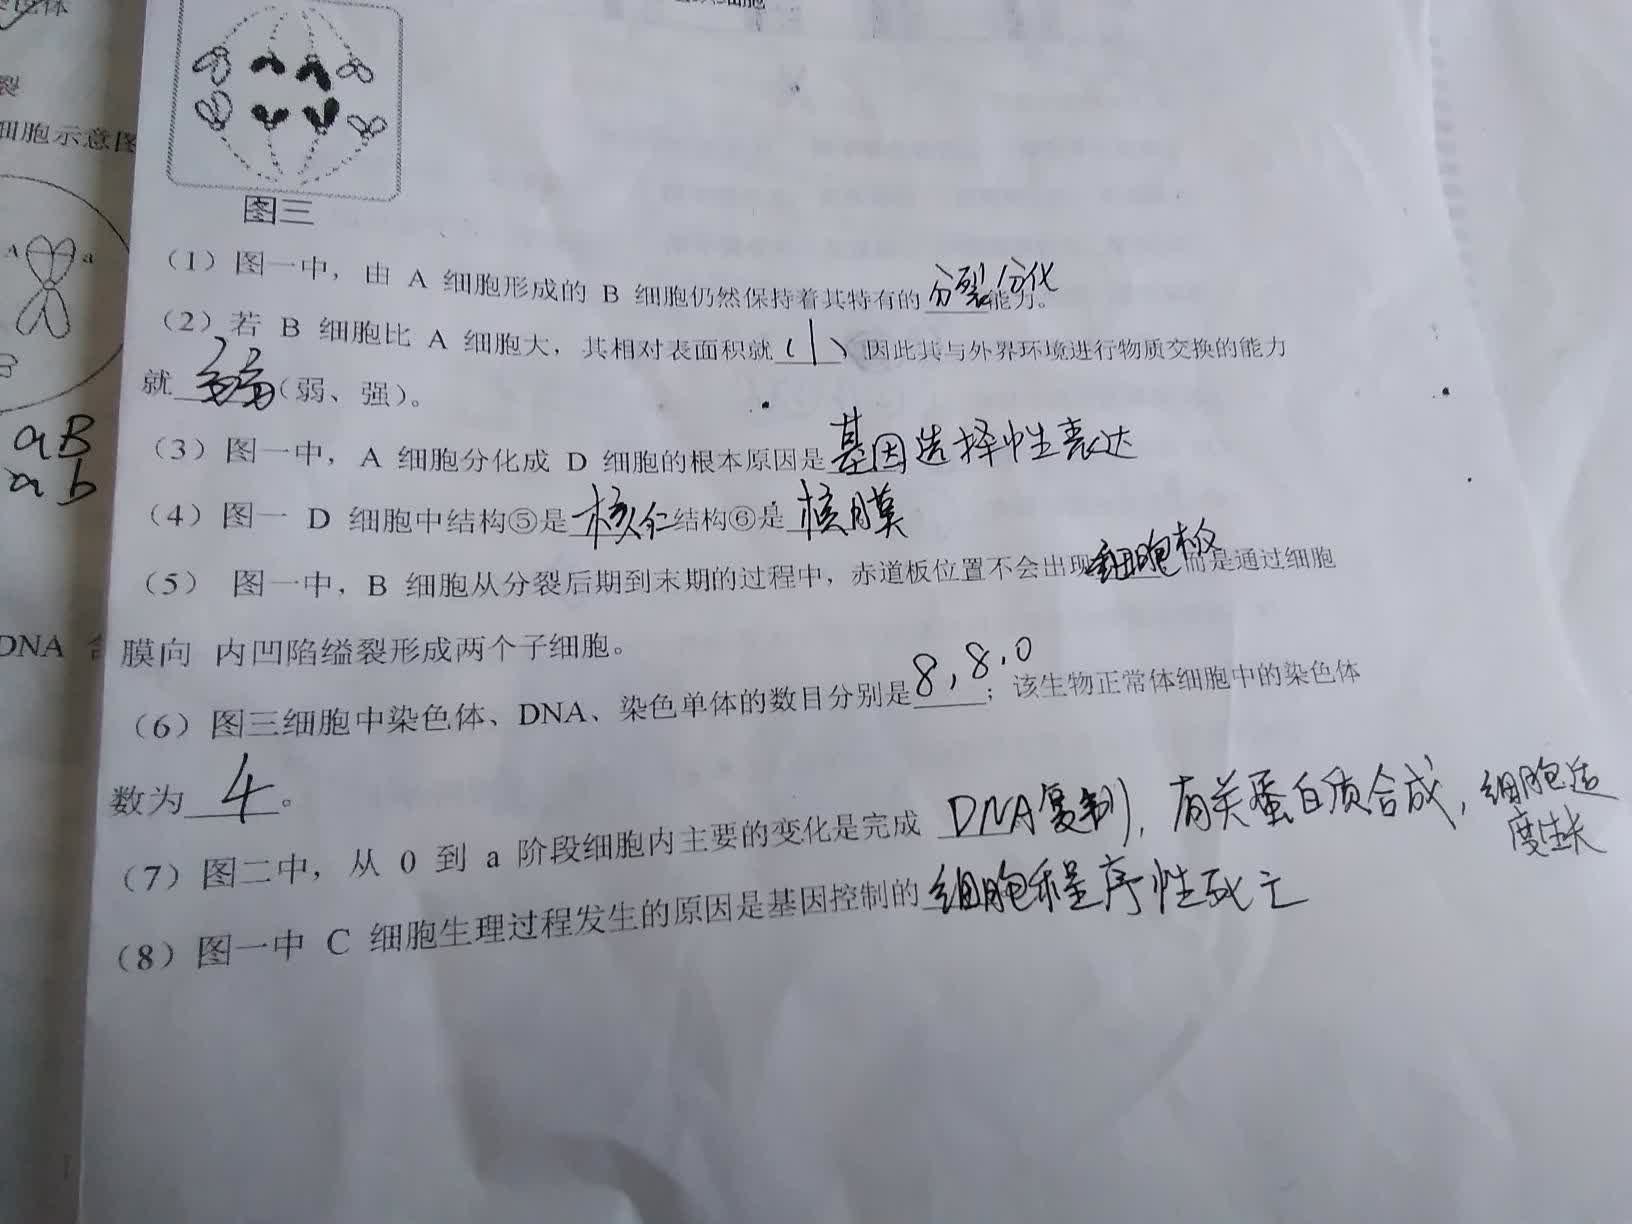 裂
细胞示意图
A a
aB
ab
DNA 含
图三
（1）图一中，由 A 细胞形成的 B 细胞仍然保持着其特有的分裂分化能力。
（2）若 B 细胞比 A 细胞大，其相对表面积就小，因此其与外界环境进行物质交换的能力
就弱（弱、强）。
（3）图一中，A 细胞分化成 D 细胞的根本原因是基因选择性表达
（4）图一 D 细胞中结构⑤是核仁结构⑥是核膜
（5） 图一中，B 细胞从分裂后期到末期的过程中，赤道板位置不会出现细胞板而是通过细胞
膜向 内凹陷缢裂形成两个子细胞。
（6）图三细胞中染色体、DNA、染色单体的数目分别是8,8,0；该生物正常体细胞中的染色体
数为4。
（7）图二中，从 0 到 a 阶段细胞内主要的变化是完成DNA复制，有关蛋白质合成，细胞适
度生长
（8）图一中 C 细胞生理过程发生的原因是基因控制的细胞程序性死亡